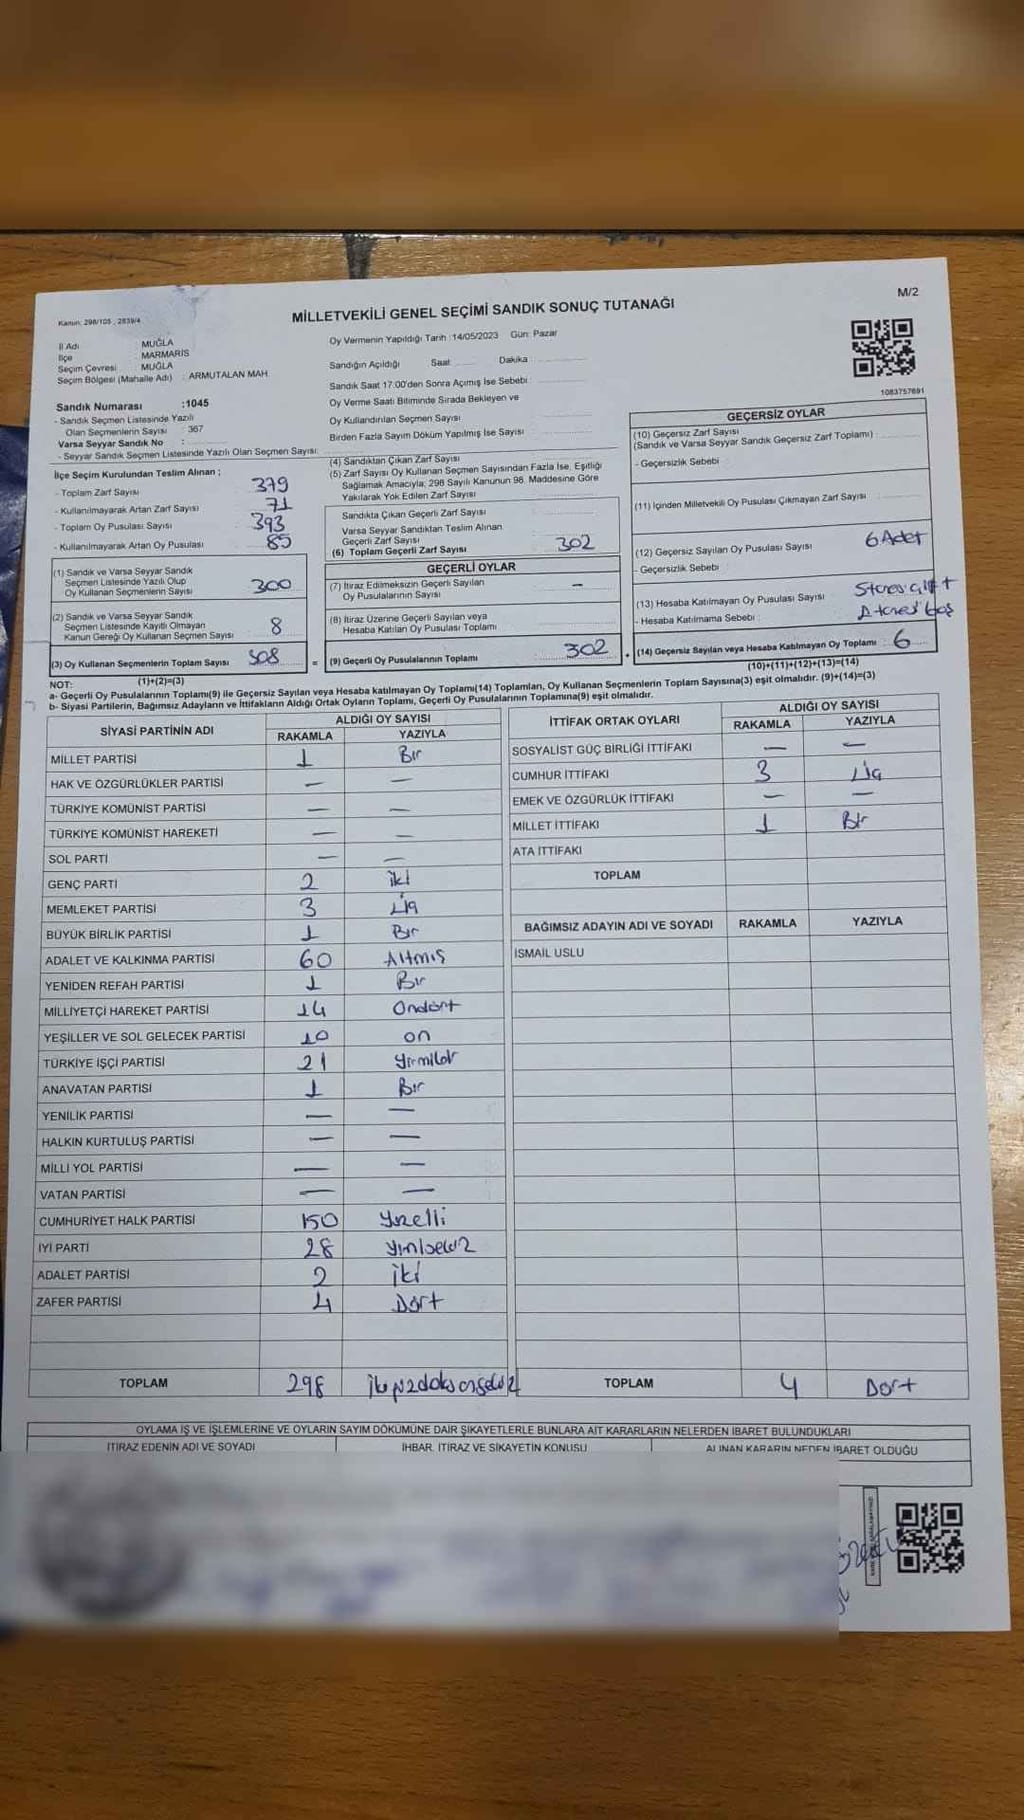 M/2
MİLLETVEKİLİ GENEL SEÇİMİ SANDIK SONUÇ TUTANAĞI
Kanun: 298/105 , 2839/4
İl Adı : MUĞLA
İlçe : MARMARİS
Seçim Çevresi : MUĞLA
Seçim Bölgesi (Mahalle Adı) : ARMUTALAN MAH.
Sandık Numarası :1045
- Sandık Seçmen Listesinde Yazılı
Olan Seçmenlerin Sayısı : 367
Varsa Seyyar Sandık No :
- Seyyar Sandık Seçmen Listesinde Yazılı Olan Seçmen Sayısı:
İlçe Seçim Kurulundan Teslim Alınan ;
- Toplam Zarf Sayısı 379
- Kullanılmayarak Artan Zarf Sayısı 71
- Toplam Oy Pusulası Sayısı 393
- Kullanılmayarak Artan Oy Pusulası 85
(1) Sandık ve Varsa Seyyar Sandık
Seçmen Listesinde Yazılı Olup
Oy Kullanan Seçmenlerin Sayısı 300
(2) Sandık ve Varsa Seyyar Sandık
Seçmen Listesinde Kayıtlı Olmayan
Kanun Gereği Oy Kullanan Seçmen Sayısı 8
(3) Oy Kullanan Seçmenlerin Toplam Sayısı 308
(1)+(2)=(3)
Oy Vermenin Yapıldığı Tarih :14/05/2023 Gün: Pazar
Sandığın Açıldığı Saat: Dakika
Sandık Saat 17:00'den Sonra Açımış İse Sebebi :
Oy Verme Saati Bitiminde Sırada Bekleyen ve
Oy Kullandırılan Seçmen Sayısı
Birden Fazla Sayım Döküm Yapılmış İse Sayısı
(4) Sandıktan Çıkan Zarf Sayısı
(5) Zarf Sayısı Oy Kullanan Seçmen Sayısından Fazla İse, Eşitliği
Sağlamak Amacıyla; 298 Sayılı Kanunun 98. Maddesine Göre
Yakılarak Yok Edilen Zarf Sayısı
Sandıkta Çıkan Geçerli Zarf Sayısı
Varsa Seyyar Sandıktan Teslim Alınan
Geçerli Zarf Sayısı
(6) Toplam Geçerli Zarf Sayısı 302
GEÇERLİ OYLAR
(7) İtiraz Edilmeksizin Geçerli Sayılan
Oy Pusulalarının Sayısı —
(8) İtiraz Üzerine Geçerli Sayılan veya
Hesaba Katılan Oy Pusulası Toplamı
= (9) Geçerli Oy Pusulalarının Toplamı 302
1083757691
GEÇERSİZ OYLAR
(10) Geçersiz Zarf Sayısı
(Sandık ve Varsa Seyyar Sandık Geçersiz Zarf Toplamı)
- Geçersizlik Sebebi
(11) İçinden Milletvekili Oy Pusulası Çıkmayan Zarf Sayısı
(12) Geçersiz Sayılan Oy Pusulası Sayısı 6 Adet
- Geçersizlik Sebebi
(13) Hesaba Katılmayan Oy Pusulası Sayısı
- Hesaba Katılmama Sebebi
+ (14) Geçersiz Sayılan veya Hesaba Katılmayan Oy Toplamı 6
(10)+(11)+(12)+(13)=(14)
NOT:
a- Geçerli Oy Pusulalarının Toplamı(9) ile Geçersiz Sayılan veya Hesaba katılmayan Oy Toplamı(14) Toplamları, Oy Kullanan Seçmenlerin Toplam Sayısına(3) eşit olmalıdır. (9)+(14)=(3)
b- Siyasi Partilerin, Bağımsız Adayların ve İttifakların Aldığı Ortak Oyların Toplamı, Geçerli Oy Pusulalarının Toplamına(9) eşit olmalıdır.
SİYASİ PARTİNİN ADI ALDIĞI OY SAYISI
RAKAMLA YAZIYLA
MİLLET PARTİSİ 1 Bir
HAK VE ÖZGÜRLÜKLER PARTİSİ — —
TÜRKİYE KOMÜNİST PARTİSİ — —
TÜRKİYE KOMÜNİST HAREKETİ — —
SOL PARTİ — —
GENÇ PARTİ 2 iki
MEMLEKET PARTİSİ 3 üç
BÜYÜK BİRLİK PARTİSİ 1 Bir
ADALET VE KALKINMA PARTİSİ 60 Altmış
YENİDEN REFAH PARTİSİ 1 Bir
MİLLİYETÇİ HAREKET PARTİSİ 14 Ondört
YEŞİLLER VE SOL GELECEK PARTİSİ 10 on
TÜRKİYE İŞÇİ PARTİSİ 21 yirmibir
ANAVATAN PARTİSİ 1 Bir
YENİLİK PARTİSİ — —
HALKIN KURTULUŞ PARTİSİ — —
MİLLİ YOL PARTİSİ — —
VATAN PARTİSİ — —
CUMHURİYET HALK PARTİSİ 150 yüzelli
İYİ PARTİ 28 yirmisekiz
ADALET PARTİSİ 2 iki
ZAFER PARTİSİ 4 Dört
TOPLAM 298 ikiyüzdoksansekiz
İTTİFAK ORTAK OYLARI ALDIĞI OY SAYISI
RAKAMLA YAZIYLA
SOSYALİST GÜÇ BİRLİĞİ İTTİFAKI — —
CUMHUR İTTİFAKI 3 üç
EMEK VE ÖZGÜRLÜK İTTİFAKI — —
MİLLET İTTİFAKI 1 Bir
ATA İTTİFAKI
TOPLAM
BAĞIMSIZ ADAYIN ADI VE SOYADI RAKAMLA YAZIYLA
İSMAİL USLU
TOPLAM 4 Dört
OYLAMA İŞ VE İŞLEMLERİNE VE OYLARIN SAYIM DÖKÜMÜNE DAİR ŞİKAYETLERLE BUNLARA AİT KARARLARIN NELERDEN İBARET BULUNDUKLARI
İTİRAZ EDENİN ADI VE SOYADI İHBAR, İTİRAZ VE ŞİKAYETİN KONUSU ALINAN KARARIN NEDEN İBARET OLDUĞU